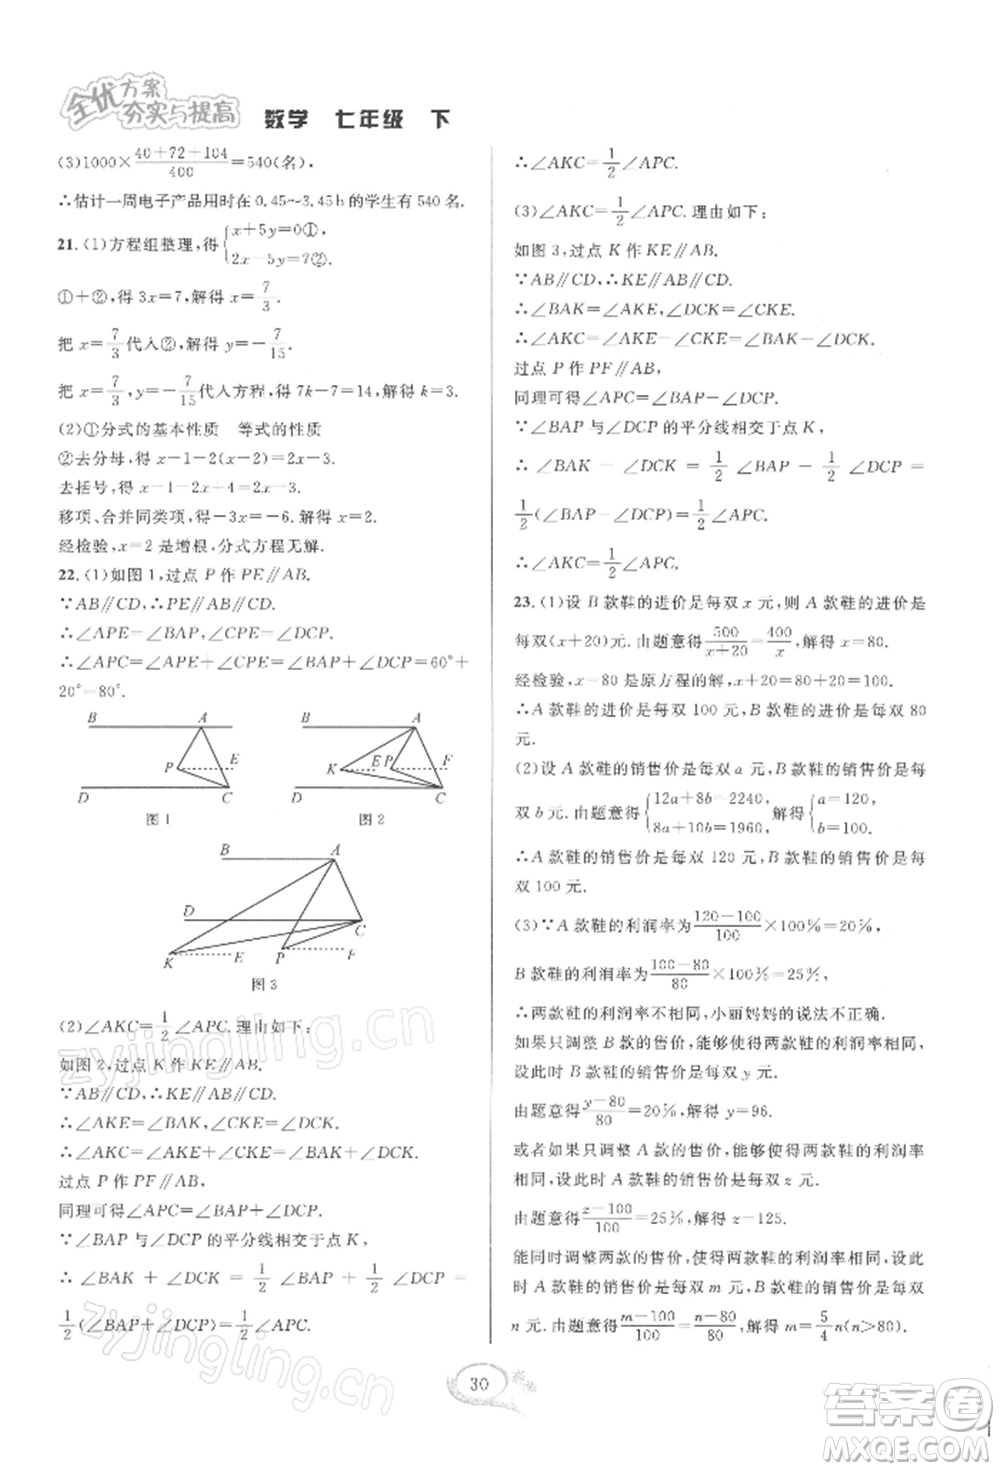 全优方案
夯实与提高
数学 七年级 下
(3)1000×(40+72+104)/400=540(名).
∴估计一周电子产品用时在 0.45~3.45 h 的学生有 540 名.
21. (1)方程组整理,得{x+5y=0①, 2x-5y=7②.
①+②,得 3x=7,解得 x=7/3.
把 x=7/3代入②,解得 y=-7/15.
把 x=7/3,y=-7/15代入方程,得 7k-7=14,解得 k=3.
(2)①分式的基本性质 等式的性质
②去分母,得 x-1-2(x-2)=2.
去括号,得 x-1-2x+4=2.
移项、合并同类项,得-3x=-6.解得 x=2.
经检验,x=2 是增根,分式方程无解.
22. (1)如图 1,过点 P 作 PE∥AB.
∵AB∥CD,∴PE∥AB∥CD.
∴∠APE=∠BAP,∠CPE=∠DCP.
∴∠APC=∠APE+∠CPE=∠BAP+∠DCP=60°+
20°=80°.
B A
P E
D C
图 1
B A
K E P F
D C
图 2
B A
D C
K E P F
图 3
(2)∠AKC=1/2∠APC.理由如下:
如图 2,过点 K 作 KE∥AB.
∵AB∥CD,∴KE∥AB∥CD.
∴∠AKE=∠BAK,∠CKE=∠DCK.
∴∠AKC=∠AKE+∠CKE=∠BAK+∠DCK.
过点 P 作 PF∥AB,
同理可得∠APC=∠BAP+∠DCP.
∵∠BAP 与∠DCP 的平分线相交于点 K,
∴∠BAK + ∠DCK = 1/2∠BAP + 1/2∠DCP =
1/2(∠BAP+∠DCP)=1/2∠APC.
∴∠AKC=1/2∠APC.
(3)∠AKC=1/2∠APC.理由如下:
如图 3,过点 K 作 KE∥AB.
∵AB∥CD,∴KE∥AB∥CD.
∴∠BAK=∠AKE,∠DCK=∠CKE.
∴∠AKC=∠AKE-∠CKE=∠BAK-∠DCK.
过点 P 作 PF∥AB,
同理可得∠APC=∠BAP-∠DCP.
∵∠BAP 与∠DCP 的平分线相交于点 K,
∴∠BAK - ∠DCK = 1/2∠BAP - 1/2∠DCP =
1/2(∠BAP-∠DCP)=1/2∠APC.
∴∠AKC=1/2∠APC.
23. (1)设 B 款鞋的进价是每双 x 元,则 A 款鞋的进价是
每双(x+20)元.由题意得500/(x+20)=400/x,解得 x=80.
经检验,x=80 是原方程的解,x+20=80+20=100.
∴A 款鞋的进价是每双 100 元,B 款鞋的进价是每双 80
元.
(2)设 A 款鞋的销售价是每双 a 元,B 款鞋的销售价是每
双 b 元.由题意得{12a+8b=2240, 8a+10b=1960, 解得{a=120, b=100.
∴A 款鞋的销售价是每双 120 元,B 款鞋的销售价是每
双 100 元.
(3)∵A 款鞋的利润率为(120-100)/100×100%=20%,
B 款鞋的利润率为(100-80)/80×100%=25%,
∴两款鞋的利润率不相同,小丽妈妈的说法不正确.
如果只调整 B 款的售价,能够使得两款鞋的利润率相同,
设此时 B 款鞋的销售价是每双 y 元.
由题意得(y-80)/80=20%,解得 y=96.
或者如果只调整 A 款的售价,能够使得两款鞋的利润率
相同,设此时 A 款鞋的销售价是每双 z 元.
由题意得(z-100)/100=25%,解得 z=125.
能同时调整两款的售价,使得两款鞋的利润率相同,设此
时 A 款鞋的销售价是每双 m 元,B 款鞋的销售价是每双
n 元.由题意得(m-100)/100=(n-80)/80,解得 m=5/4n(n>80).
30
zyjingling.cn
zyjingling.cn
答案圈
MXQE.COM